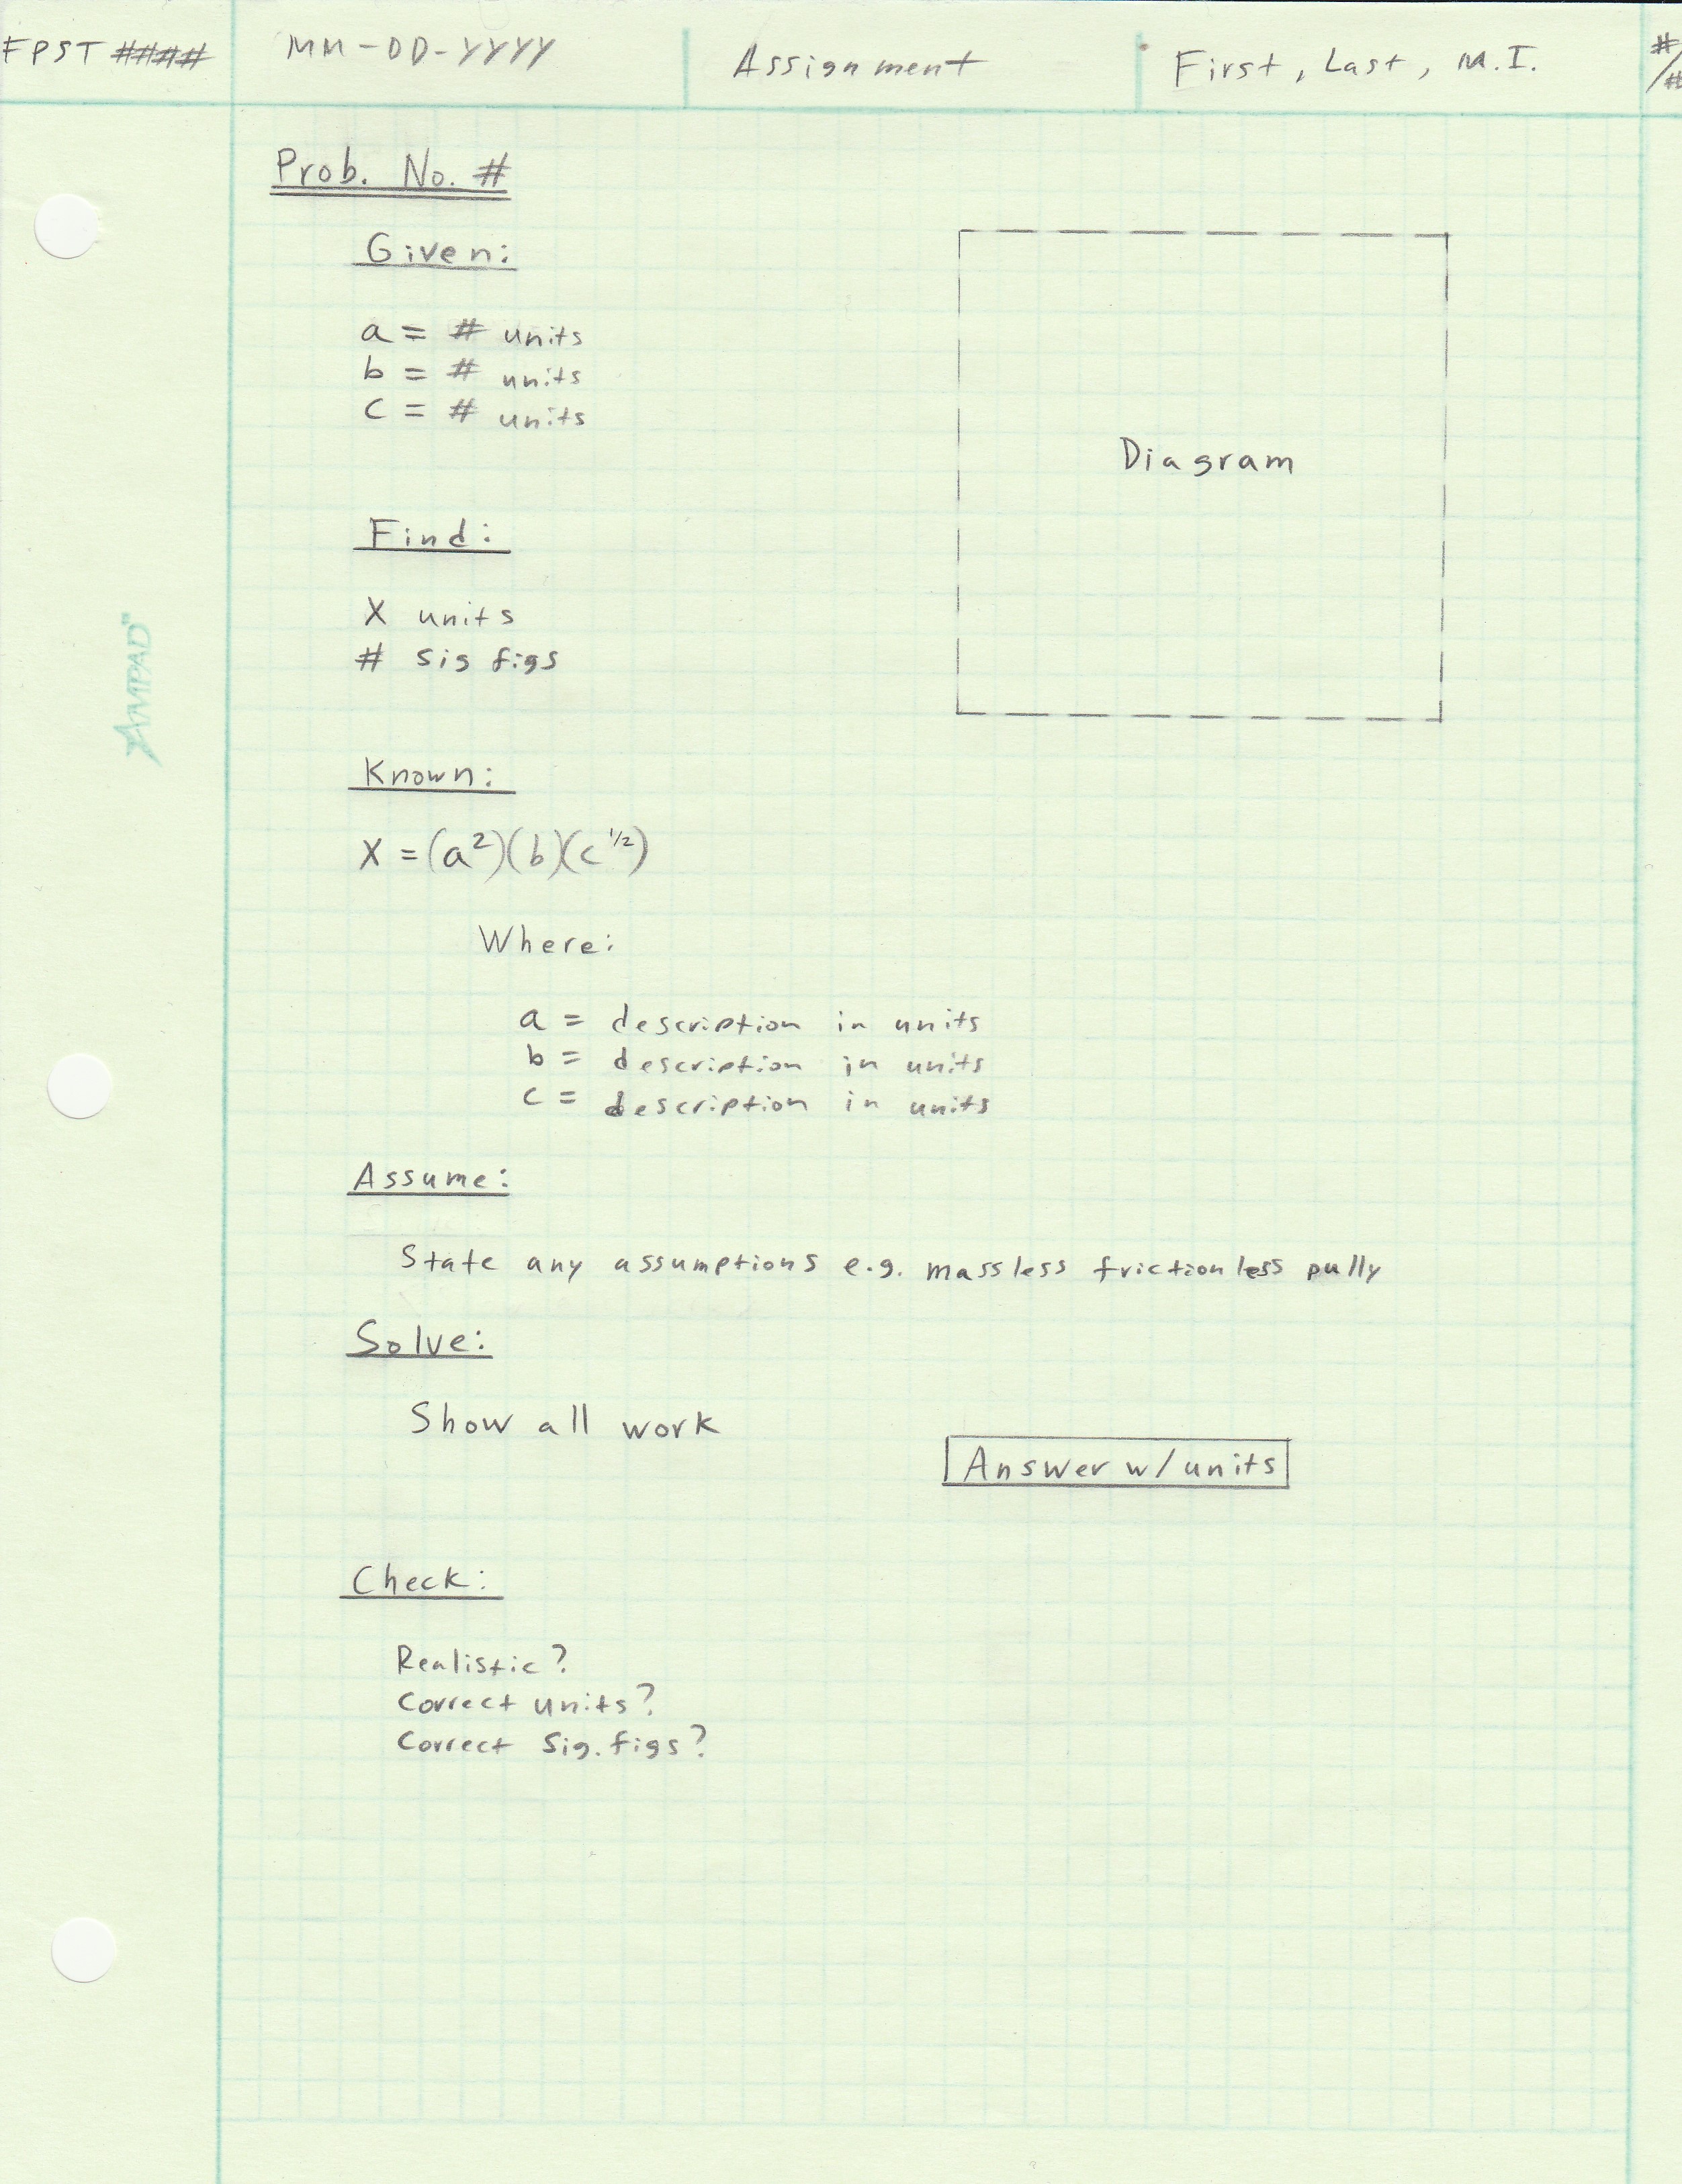 FPST ####
MM-DD-YYYY
Assignment
First, Last, M.I.
#/#
Prob. No. #
Given:
a = # units
b = # units
c = # units
Diagram
Find:
X units
# sig figs
Known:
X = (a²)(b)(c^1/2)
Where:
a = description in units
b = description in units
c = description in units
Assume:
State any assumptions e.g. massless frictionless pully
Solve:
Show all work
Answer w/units
Check:
Realistic?
Correct units?
Correct Sig. figs?
AMPAD